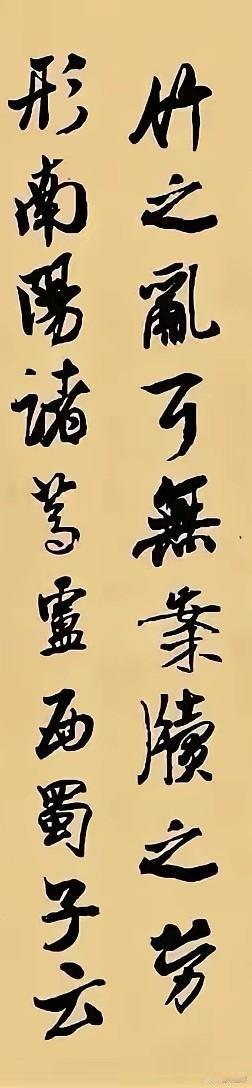 竹之亂耳無案牘之勞
形南陽諸葛廬西蜀子云